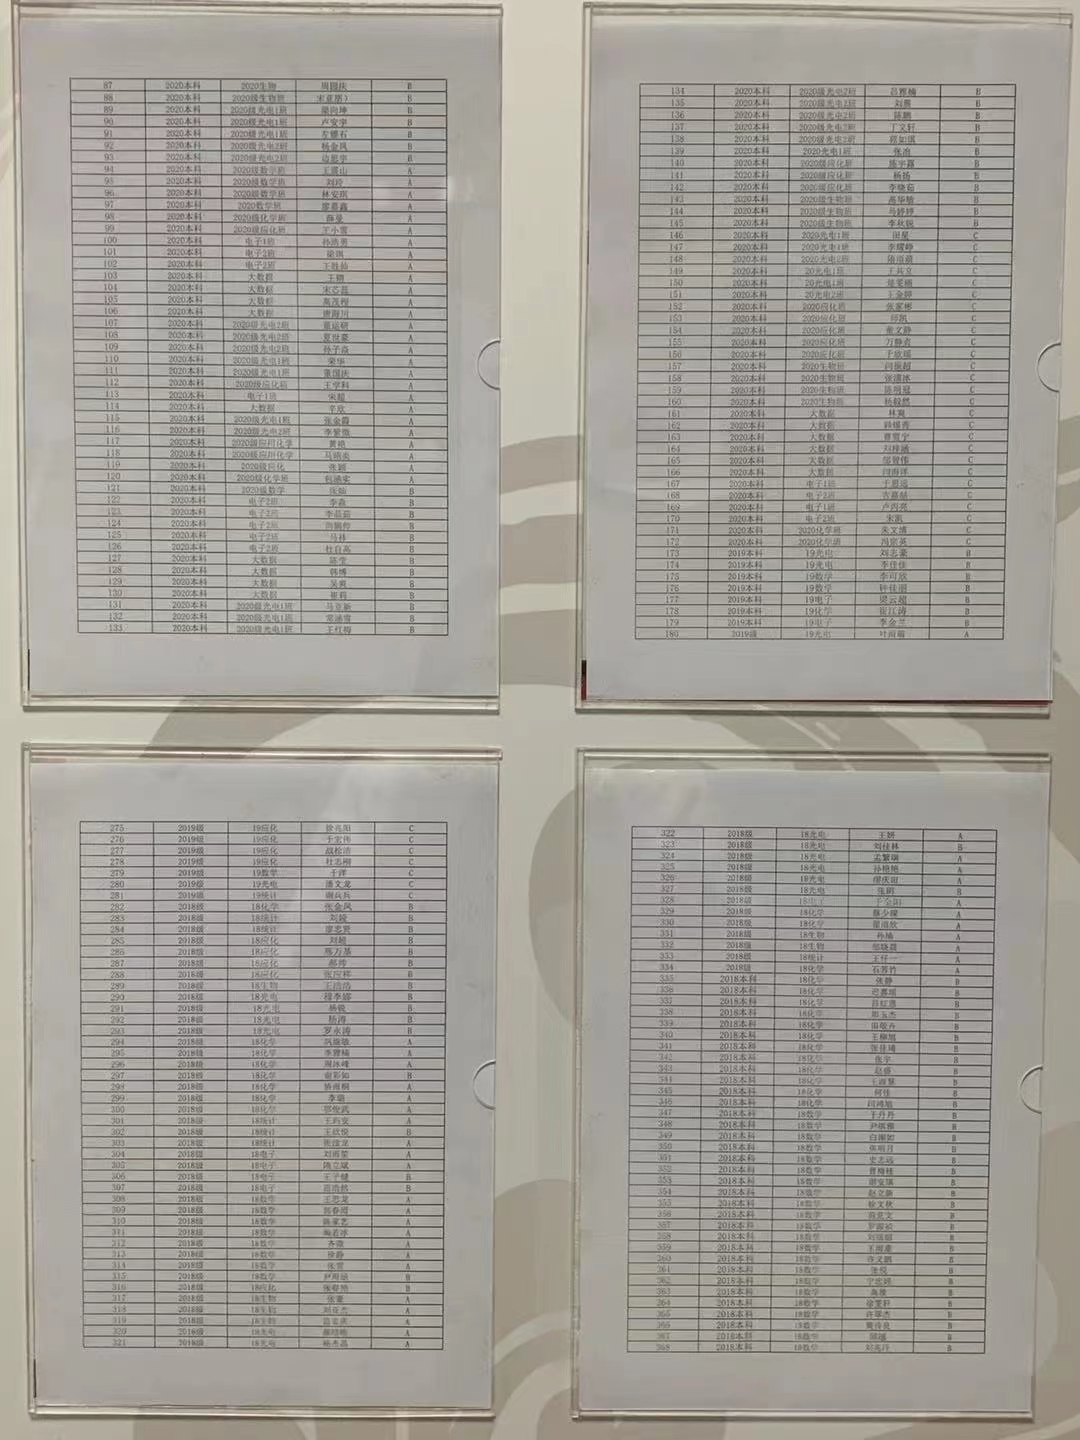 87 2020本科 2020生物 周园庆 B
88 2020本科 2020级生物班 B
89 2020本科 2020级光电1班 梁向坤 B
90 2020本科 2020级光电1班 卢安宇 B
91 2020本科 2020级光电1班 左耀石 B
92 2020本科 2020级光电2班 杨金凤 B
93 2020本科 2020级光电2班 边思宇 B
94 2020本科 2020级数学班 A
95 2020本科 2020级数学班 刘玲 A
96 2020本科 2020级数学班 林安琪 A
97 2020本科 2020数学班 廖嘉鑫 A
98 2020本科 2020级化学班 薛曼 A
99 2020本科 2020级应化班 王小雪 A
100 2020本科 电子1班 孙浩勇 A
101 2020本科 电子2班 梁琪 A
102 2020本科 电子2班 A
103 2020本科 大数据 A
104 2020本科 大数据 A
105 2020本科 大数据 高茂程 A
106 2020本科 大数据 唐海川 A
107 2020本科 2020级光电2班 董瑞研 A
108 2020本科 2020级光电2班 夏世豪 A
109 2020本科 2020级光电2班 孙子焱 A
110 2020本科 2020级光电1班 荣华 A
111 2020本科 2020级光电1班 董国庆 A
112 2020本科 2020级应化班 王学科 A
113 2020本科 电子1班 宋超 A
114 2020本科 大数据 辛欣 A
115 2020本科 2020级光电1班 张金霞 A
116 2020本科 2020级光电2班 李紫薇 A
117 2020本科 2020级应用化学 黄艳 A
118 2020本科 2020级应用化学 A
119 2020本科 2020级应化 张颖 A
120 2020本科 2020级化学班 包涵实 A
121 2020本科 2020级数学 B
122 2020本科 电子2班 李磊 B
123 2020本科 电子2班 李茹茹 B
124 2020本科 电子2班 B
125 2020本科 电子2班 马林 B
126 2020本科 电子2班 杜自高 B
127 2020本科 大数据 陈莹 B
128 2020本科 大数据 韩博 B
129 2020本科 大数据 吴爽 B
130 2020本科 大数据 崔莉 B
131 2020本科 2020级光电1班 马亚新 B
132 2020本科 2020级光电1班 常涵雪 B
133 2020本科 2020级光电1班 王红梅 B
134 2020本科 2020级光电2班 吕雅楠 B
135 2020本科 2020级光电2班 刘燕 B
136 2020本科 2020级光电2班 陈鹏 B
137 2020本科 2020级光电2班 丁文轩 B
138 2020本科 2020级光电2班 程如琪 B
139 2020本科 2020光电1班 张冶 B
140 2020本科 2020级应化班 陈宇嘉 B
141 2020本科 2020级应化班 杨扬 B
142 2020本科 2020级应化班 李晓茹 B
143 2020本科 2020级生物班 高华敏 B
144 2020本科 2020级生物班 马婷婷 B
145 2020本科 2020级生物班 李秋锐 B
146 2020本科 2020光电1班 田星 C
147 2020本科 2020光电1班 李耀峥 C
148 2020本科 2020光电2班 C
149 2020本科 20光电1班 王兵立 C
150 2020本科 20光电1班 C
151 2020本科 20光电2班 王金婷 C
152 2020本科 2020应化班 张家彬 C
153 2020本科 2020应化班 邱凯 C
154 2020本科 2020应化班 董文静 C
155 2020本科 2020应化班 万静贞 C
156 2020本科 2020应化班 于欣瑶 C
157 2020本科 2020生物班 闫振超 C
158 2020本科 2020生物班 C
159 2020本科 2020生物班 陈明冠 C
160 2020本科 2020生物班 杨毅然 C
161 2020本科 大数据 林爽 C
162 2020本科 大数据 C
163 2020本科 大数据 曹雪宁 C
164 2020本科 大数据 刘梓涵 C
165 2020本科 大数据 邹智伟 C
166 2020本科 大数据 闫海洋 C
167 2020本科 电子1班 于思远 C
168 2020本科 电子2班 吉嘉喆 C
169 2020本科 电子1班 卢丙亮 C
170 2020本科 电子2班 宋凯 C
171 2020本科 2020化学班 朱文清 C
172 2020本科 2020化学班 冯宗英 C
173 2019本科 19光电 刘志豪 B
174 2019本科 19光电 李佳佳 B
175 2019本科 19数学 李可欣 B
176 2019本科 19数学 钟佳丽 B
177 2019本科 19电子 梁云超 B
178 2019本科 19化学 崔江涛 B
179 2019本科 19电子 李金兰 B
180 2019级 19光电 叶雨萌 A
275 2019级 19应化 徐兆阳 C
276 2019级 19应化 于宏伟 C
277 2019级 19应化 战松洁 C
278 2019级 19应化 杜志刚 C
279 2019级 19数学 于洋 C
280 2019级 19光电 潘文龙 C
281 2019级 19统计 谢兵兵 C
282 2018级 18化学 张金凤 B
283 2018级 18统计 刘晓 B
284 2018级 18统计 廖忠贤 B
285 2018级 18应化 刘超 B
286 2018级 18应化 邢万基 B
287 2018级 18应化 郝帅 B
288 2018级 18应化 张应样 B
289 2018级 18生物 王浩浩 B
290 2018级 18光电 穆李娜 B
291 2018级 18光电 杨锐 B
292 2018级 18光电 杨涛 B
293 2018级 18光电 罗永涛 B
294 2018级 18化学 巩施敏 A
295 2018级 18化学 李雅楠 A
296 2018级 18化学 周冰峰 A
297 2018级 18化学 谢彩如 B
298 2018级 18化学 A
299 2018级 18化学 李璐 A
300 2018级 18化学 郭俊武 A
301 2018级 18统计 A
302 2018级 18统计 王欣悦 B
303 2018级 18统计 张潆龙 A
304 2018级 18电子 刘雨笙 A
305 2018级 18电子 隋立斌 A
306 2018级 18电子 王子健 B
307 2018级 18电子 范浩然 B
308 2018级 18数学 王恩龙 A
309 2018级 18数学 郭春雨 A
310 2018级 18数学 陈家艺 A
311 2018级 18数学 A
312 2018级 18数学 齐微 A
313 2018级 18数学 徐静 A
314 2018级 18数学 张雪 A
315 2018级 18数学 尹雨涵 B
316 2018级 18应化 张春艳 B
317 2018级 18生物 张豪 A
318 2018级 18生物 刘亚杰 A
319 2018级 18生物 A
320 2018级 18光电 A
321 2018级 18光电 杨杰晶 A
322 2018级 18光电 王妍 A
323 2018级 18光电 刘佳林 B
324 2018级 18光电 孟繁瑞 A
325 2018级 18光电 孙艳艳 A
326 2018级 18光电 缪庆阳 A
327 2018级 18光电 张明 B
328 2018级 18电子 于金阳 A
329 2018级 18化学 A
330 2018级 18化学 A
331 2018级 18生物 孙楠 A
332 2018级 18生物 邹晓晨 A
333 2018级 18统计 王仟一 A
334 2018级 18化学 石苏竹 A
335 2018本科 18化学 张静 B
336 2018本科 18化学 迟嘉瑶 B
337 2018本科 18化学 吕红恩 B
338 2018本科 18化学 郑玉杰 B
339 2018本科 18化学 田敬卉 B
340 2018本科 18化学 王柳旭 B
341 2018本科 18化学 张佳琦 B
342 2018本科 18化学 张宇 B
343 2018本科 18化学 赵盛 B
344 2018本科 18化学 王淑慧 B
345 2018本科 18化学 何佳 B
346 2018本科 18化学 闫鸿旭 B
347 2018本科 18数学 于丹丹 B
348 2018本科 18数学 尹祺雅 B
349 2018本科 18数学 白湘如 B
350 2018本科 18数学 张明月 B
351 2018本科 18数学 史志远 B
352 2018本科 18数学 曹梅桂 B
353 2018本科 18数学 谢安琪 B
354 2018本科 18数学 赵立新 B
355 2018本科 18数学 徐文秋 B
356 2018本科 18数学 B
357 2018本科 18数学 B
358 2018本科 18数学 刘瑶瑶 B
359 2018本科 18数学 B
360 2018本科 18数学 许义鹏 B
361 2018本科 18数学 张悦 B
362 2018本科 18数学 宁忠廷 B
363 2018本科 18数学 高雅 B
364 2018本科 18数学 徐雯轩 B
365 2018本科 18数学 许翠杰 B
366 2018本科 18数学 B
367 2018本科 18数学 邱越 B
368 2018本科 18数学 刘兆丹 B